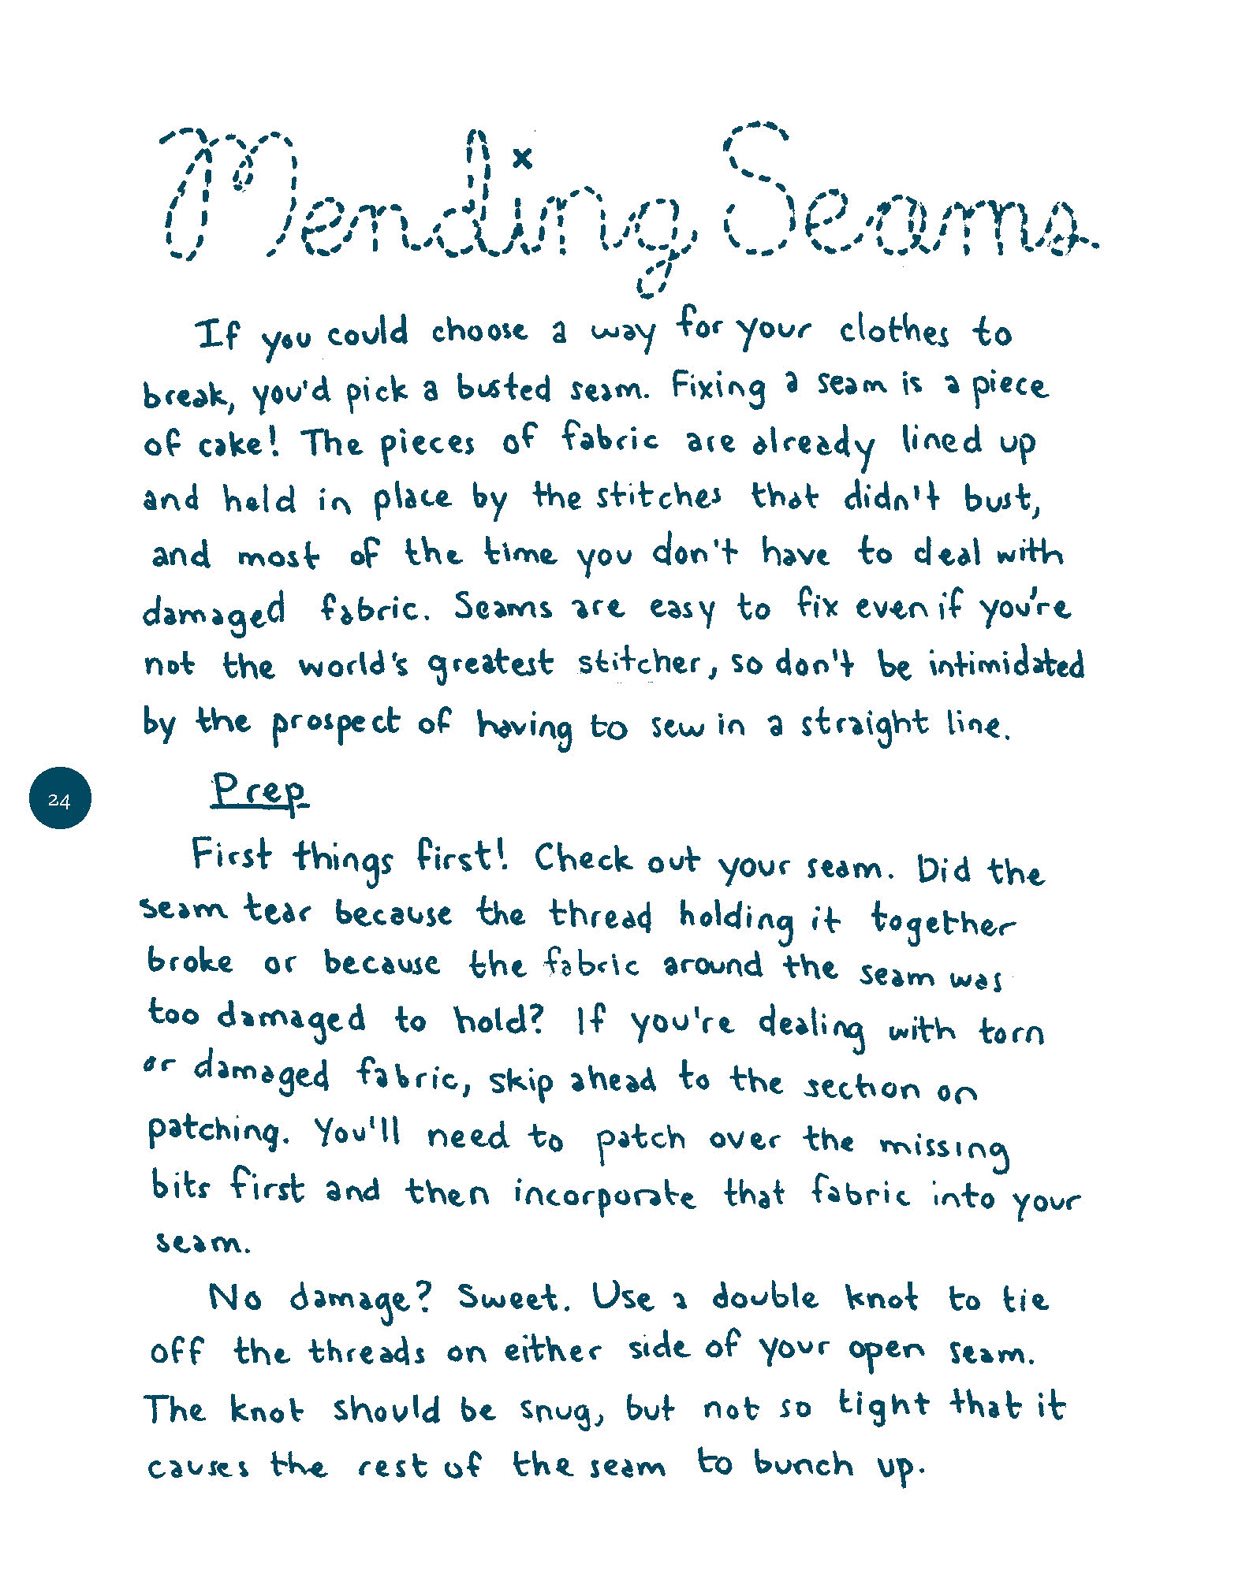 Mending Seams
If you could choose a way for your clothes to
break, you'd pick a busted seam. Fixing a seam is a piece
of cake! The pieces of fabric are already lined up
and held in place by the stitches that didn't bust,
and most of the time you don't have to deal with
damaged fabric. Seams are easy to fix even if you're
not the world's greatest stitcher, so don't be intimidated
by the prospect of having to sew in a straight line.
24
Prep
First things first! Check out your seam. Did the
seam tear because the thread holding it together
broke or because the fabric around the seam was
too damaged to hold? If you're dealing with torn
or damaged fabric, skip ahead to the section on
patching. You'll need to patch over the missing
bits first and then incorporate that fabric into your
seam.
No damage? Sweet. Use a double knot to tie
off the threads on either side of your open seam.
The knot should be snug, but not so tight that it
causes the rest of the seam to bunch up.